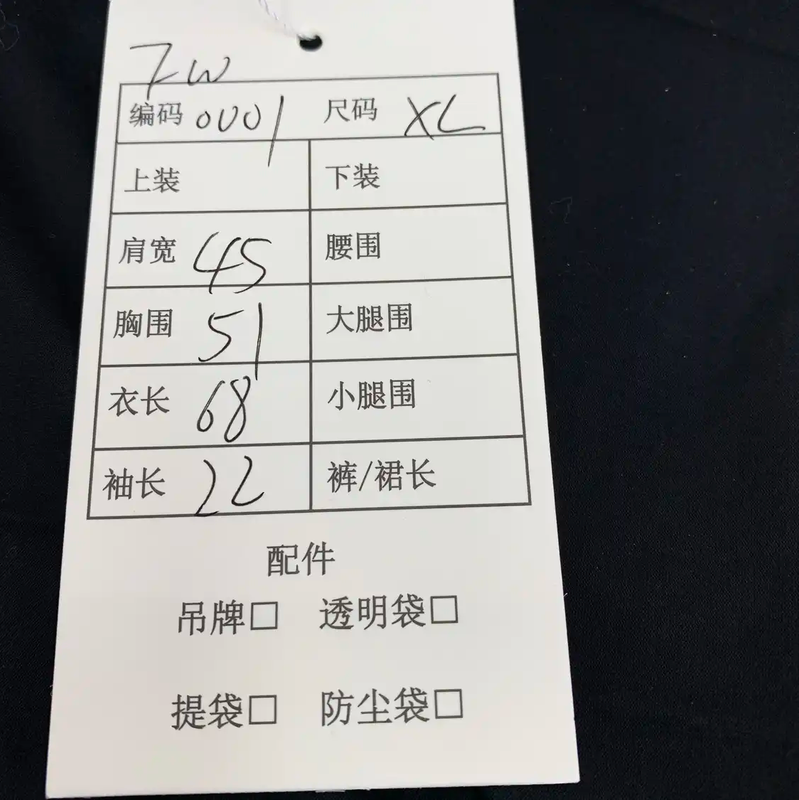 ZW
编码 0001 尺码 XL
上装 下装
肩宽 45 腰围
胸围 51 大腿围
衣长 68 小腿围
袖长 22 裤/裙长
配件
吊牌□ 透明袋□
提袋□ 防尘袋□